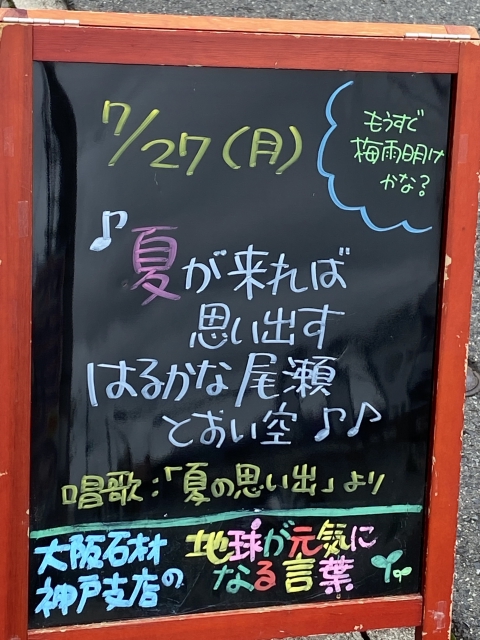 7/27(月)
もうすぐ
梅雨明け
かな?
♪夏が来れば
思い出す
はるかな尾瀬
とおい空♪♪
唱歌:「夏の思い出」より
大阪石材
神戸支店の
地球が元気に
なる言葉